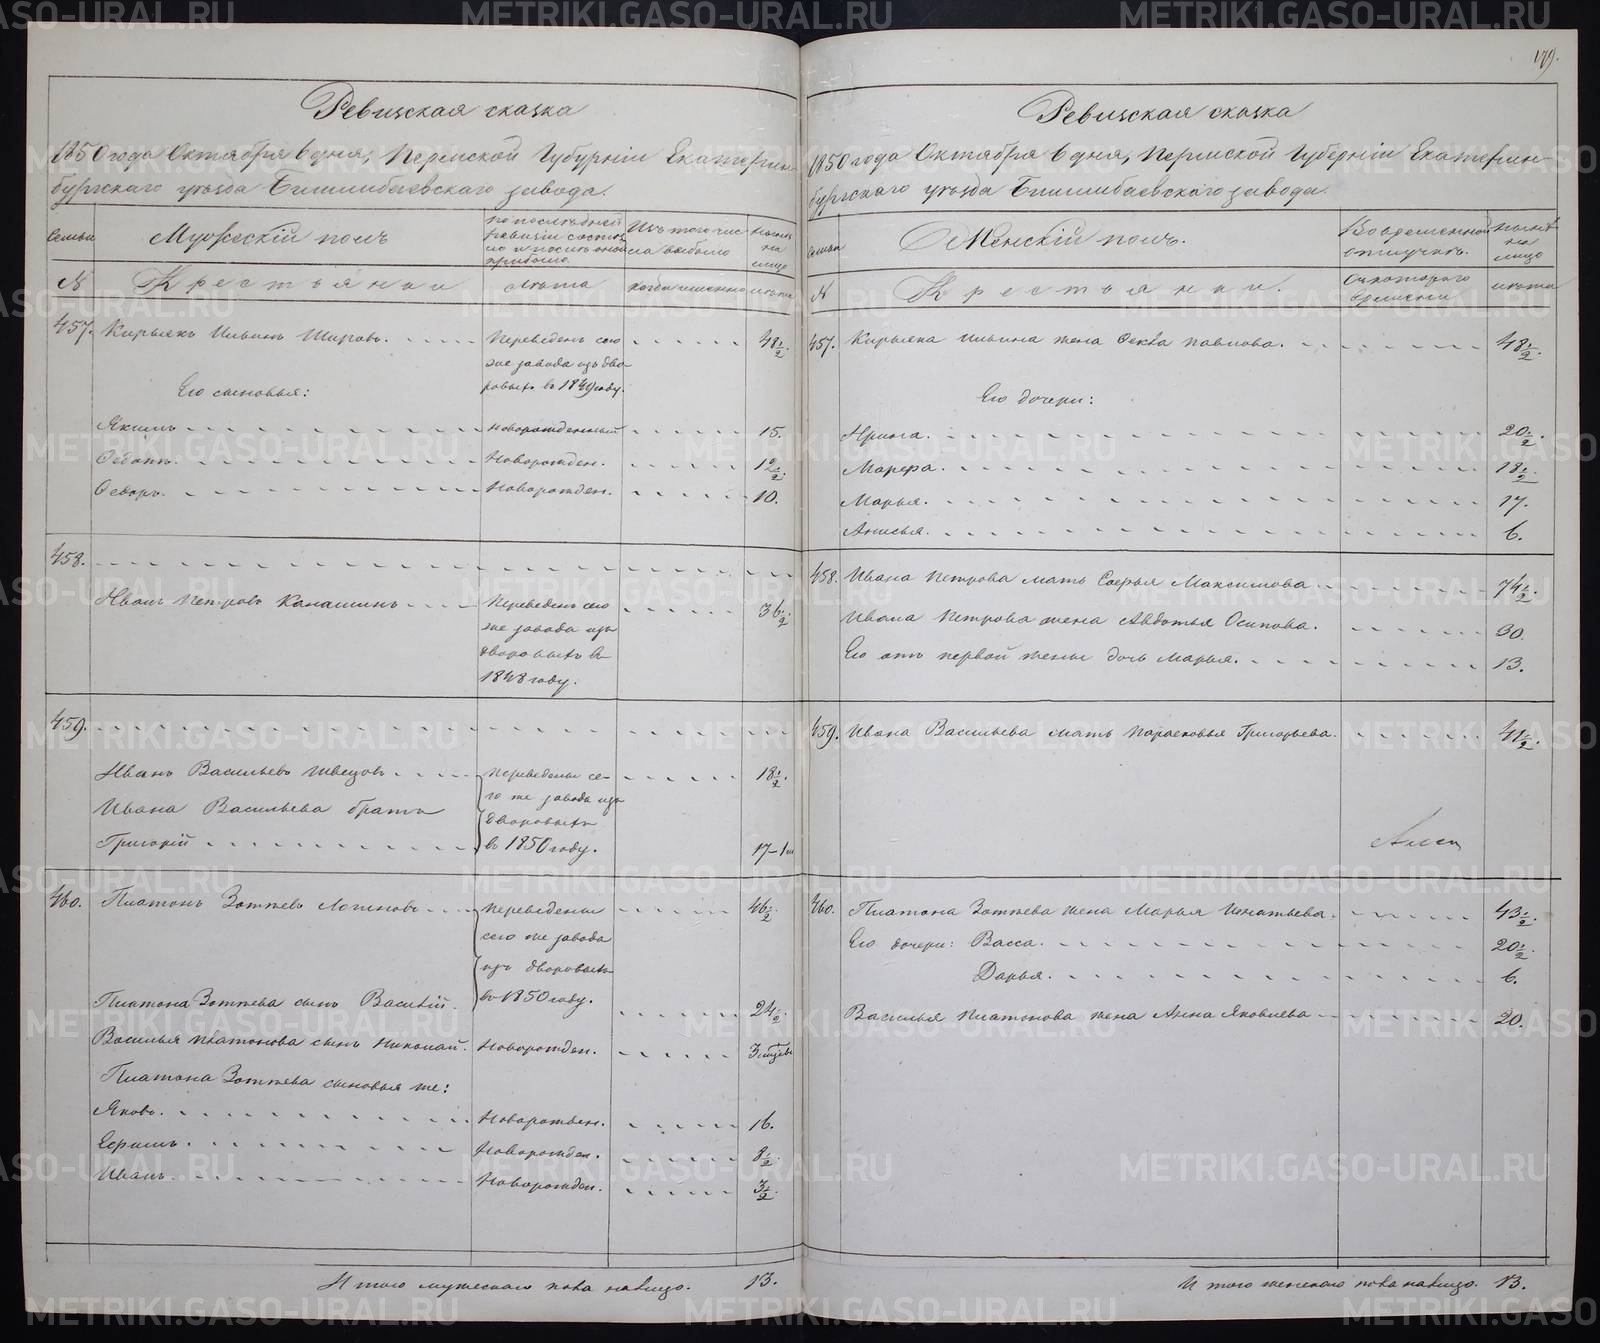 179.
Ревизская сказка
1850 года Октября 6 дня, Пермской Губернiи Екатерин-
бургскаго уѣзда Билимбаевскаго завода.
Семьи
Мужескiй полъ
По послѣдней ревизiи состоя-
ло и послѣ оной прибыло
Изъ того чис-
ла выбыло
Нынѣ на лицо
N
Крестьяния
лѣта
когда именно
лѣта
457. Кирьякъ Ильинъ Шировъ. Переведенъ сего 48 1/2.
же завода изъ дво-
ровыхъ въ 1849 году.
Его сыновья:
Якимъ новорожденный 15.
Ѳедотъ. Новорожден. 12 1/2.
Ѳедоръ. Новорожден. 10.
458.
Иванъ Петровъ Канашинъ Переведенъ сего 36 1/2.
же завода изъ
дворовыхъ въ
1848 году.
459.
Иванъ Васильевъ Швецовъ Переведены се- 18 1/2.
го же завода изъ
Ивана Васильева братъ дворовыхъ
Григорiй въ 1850 году. 17-1м
460. Платонъ Зотѣевъ Логиновъ Переведены 46 1/2.
сего же завода
изъ дворовыхъ
Платона Зотѣева сынъ Василiй. въ 1850 году. 24 1/2.
Василья Платонова сынъ Николай. Новорожден. 3
Платона Зотѣева сыновья же:
Яковъ. Новорожден. 16.
Ефимъ. Новорожден. 8 1/2.
Иванъ. Новорожден. 3 1/2.
Итого мужескаго пола налицо. 13.
Ревизская сказка
1850 года Октября 6 дня, Пермской Губернiи Екатерин-
бургскаго уѣзда Билимбаевскаго завода.
Семьи
Женскiй полъ.
Во временной
отлучкѣ.
Нынѣ на лицо
N
Крестьянки.
Съ котораго
времени
лѣта
457. Кирьяка Ильина жена Ѳекла Павлова. 48 1/2.
Его дочери:
Ирина. 20 1/2.
Марѳра. 18 1/2
Марья. 17.
Анисья. 6.
458. Ивана Петрова мать Софья Максимова. 74 1/2.
Ивана Петрова жена Авдотья Осипова. 30.
Его отъ первой жены дочь Марья. 13.
459. Ивана Васильева мать Парасковья Григорьева. 41 1/2.
460. Платона Зотѣева жена Марья Игнатьева. 43 1/2.
Его дочери: Васса. 20 1/2.
Дарья. 6.
Василья Платонова жена Анна Яковлева 20.
Итого женскаго пола налицо. 13.
METRIKI.GASO-URAL.RU